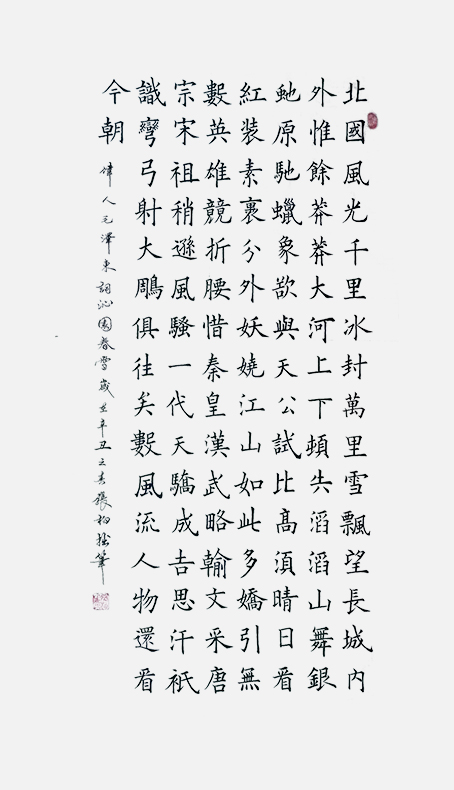 北國風光千里冰封萬里雪飄望長城內
外惟餘莽莽大河上下頓失滔滔山舞銀
虵原馳蠟象欲與天公試比高須晴日看
紅装素裹分外妖嬈江山如此多嬌引無
數英雄競折腰惜秦皇漢武略輸文采唐
宗宋祖稍遜風騷一代天驕成吉思汗衹
識彎弓射大鵰俱往矣數風流人物還看
今朝
偉人毛澤東詞沁園春雪歲在辛丑之春張 筆